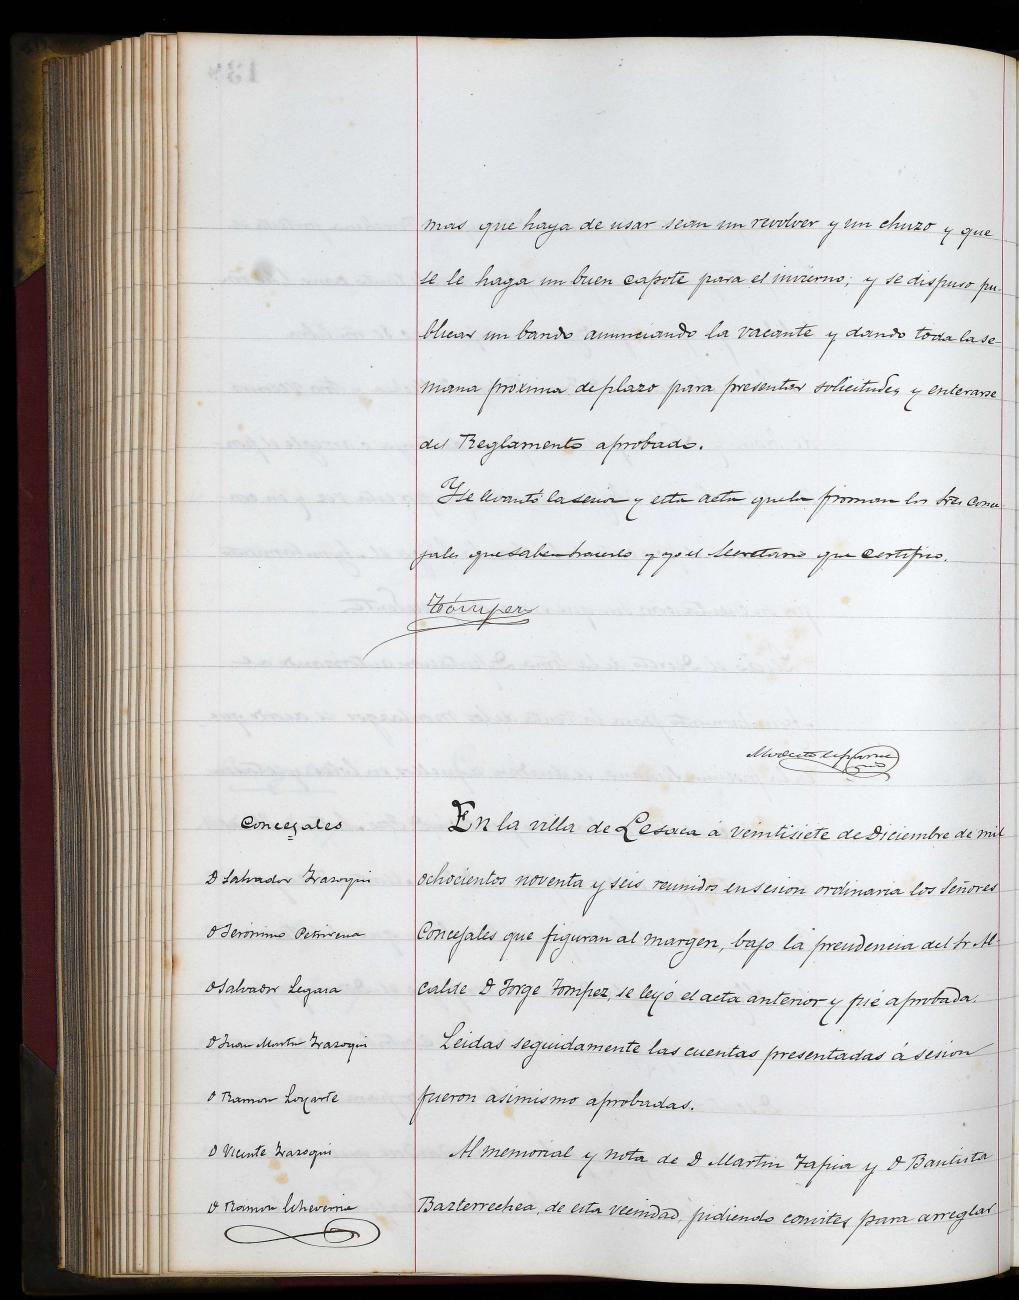 mas que haya de usar sean un revolver y un chuzo y que
se le haga un buen capote para el invierno; y se dispuso pu-
blicar un bando anunciando la vacante y dando toda la se-
mana proxima de plazo para presentar solicitudes y enterarse
del Reglamento aprobado.
Y se levantó la sesion y esta acta que la firman los Sres conce
jales que saben hacerlo y yo el Secretario que certifico.
Tómpez
Modesto
Concejales
D Salvador Irazoqui
D Jerónimo Petrirena
D Salvador Legasa
D Juan Martin Irazoqui
D Ramon Loyarte
D Vicente Irazoqui
D Ramon Echeverria
En la villa de Lesaca á veintisiete de Diciembre de mil
ochocientos noventa y seis reunidos en sesion ordinaria los Señores
Concejales que figuran al margen, bajo la presidencia del Sr Al-
calde D Jorge Tompez, se leyó el acta anterior y fué aprobada.
Leidas seguidamente las cuentas presentadas á sesion
fueron asimismo aprobadas.
Al memorial y nota de D Martin Tapia y D Bautista
Bazterrechea, de esta vecindad, pidiendo comites para arreglar